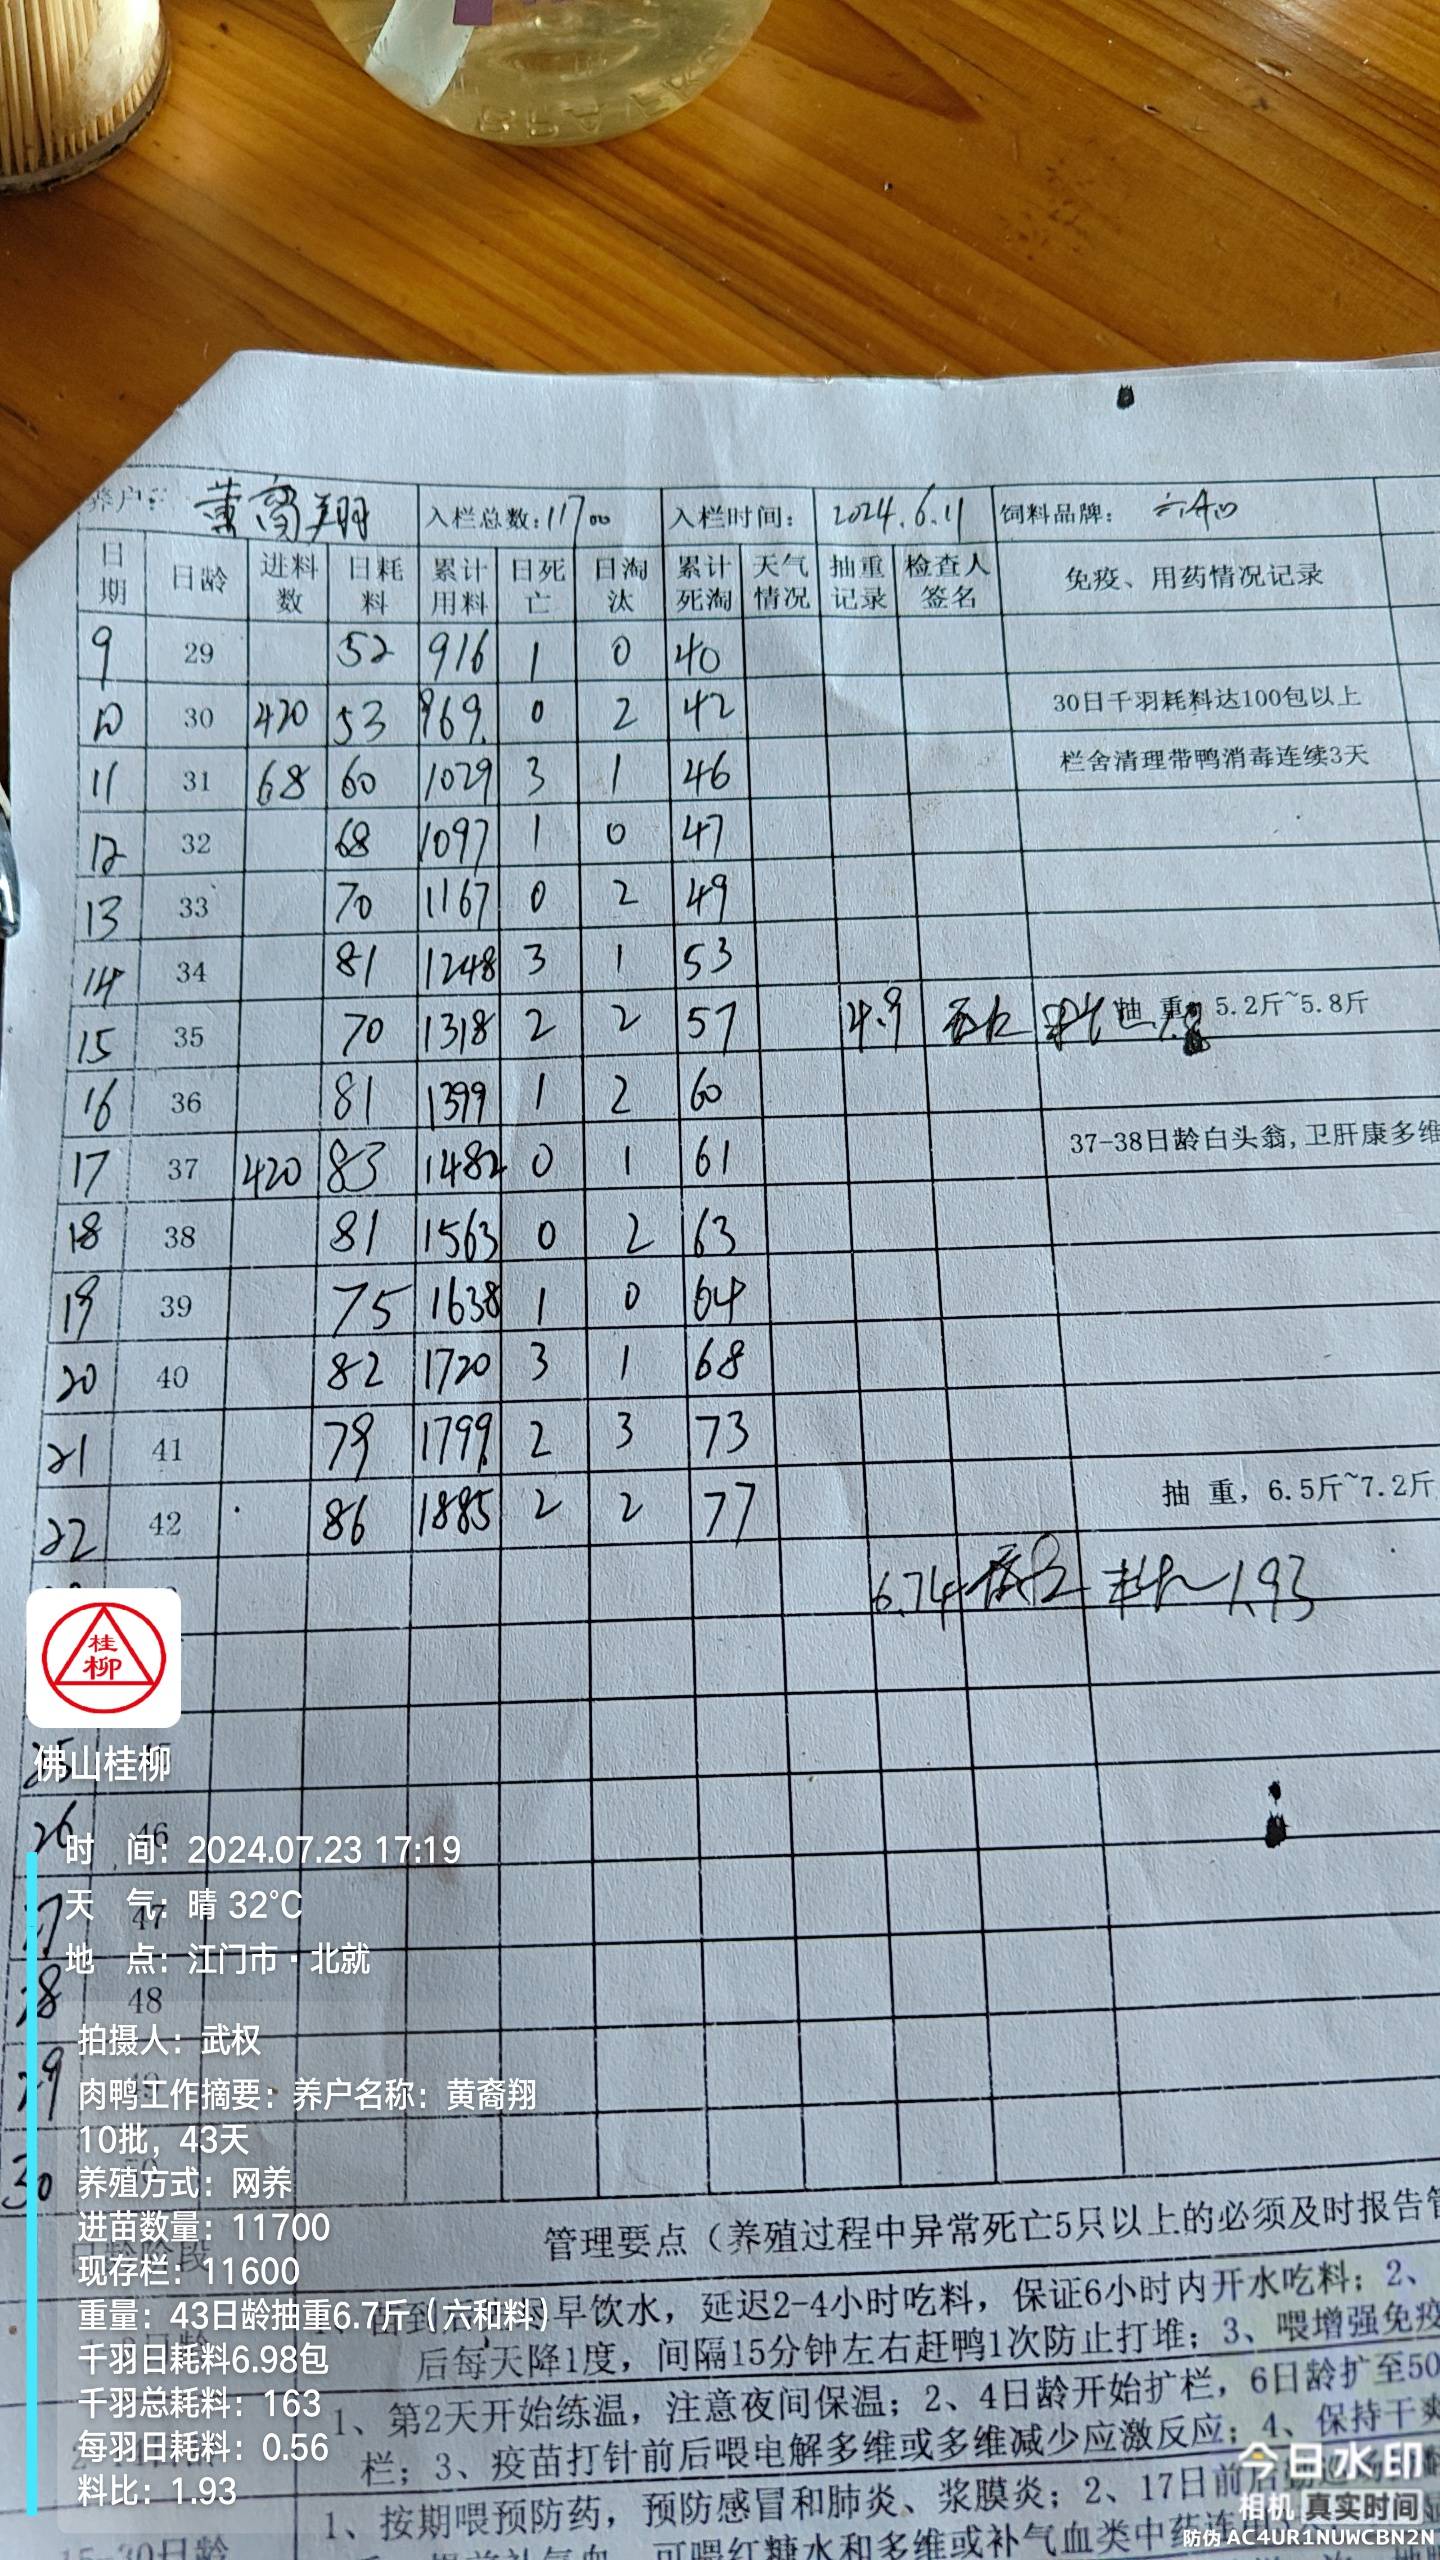 养户: 黄裔翔 入栏总数:11700 入栏时间: 2024.6.11 饲料品牌: 六和
日期 日龄 进料数 日耗料 累计用料 日死亡 日淘汰 累计死淘 天气情况 抽重记录 检查人签名 免疫、用药情况记录
9 29 52 916 1 0 40
10 30 420 53 969 0 2 42 30日千羽耗料达100包以上
11 31 68 60 1029 3 1 46 栏舍清理带鸭消毒连续3天
12 32 68 1097 1 0 47
13 33 70 1167 0 2 49
14 34 81 1248 3 1 53
15 35 70 1318 2 2 57 4.9 抽 重, 5.2斤~5.8斤
16 36 81 1399 1 2 60
17 37 420 83 1482 0 1 61 37-38日龄白头翁,卫肝康多维
18 38 81 1563 0 2 63
19 39 75 1638 1 0 64
20 40 82 1720 3 1 68
21 41 79 1799 2 3 73
22 42 86 1885 2 2 77 抽 重, 6.5斤~7.2斤
6.74 料比 1.93
桂柳
佛山桂柳
25
26 46
时 间: 2024.07.23 17:19
47
天 气: 晴 32°C
地 点: 江门市·北就
28 48
拍摄人: 武权
29
肉鸭工作摘要: 养户名称: 黄裔翔
10批, 43天
30
养殖方式: 网养
进苗数量: 11700
管理要点（养殖过程中异常死亡5只以上的必须及时报告管
现存栏: 11600
重量: 43日龄抽重6.7斤（六和料）
早饮水，延迟2-4小时吃料，保证6小时内开水吃料；2、
后每天降1度，间隔15分钟左右赶鸭1次防止打堆；3、喂增强免疫
千羽日耗料6.98包
千羽总耗料: 163
1、第2天开始练温，注意夜间保温；2、4日龄开始扩栏，6日龄扩至50
每羽日耗料: 0.56
栏；3、疫苗打针前后喂电解多维或多维减少应激反应；4、保持干爽
料比: 1.93
1、按期喂预防药，预防感冒和肺炎、浆膜炎；2、17日前后
15-30日龄
可喂红糖水和多维或补气血类中药连
今日水印
相机 真实时间
防伪 AC4UR1NUWCBN2N